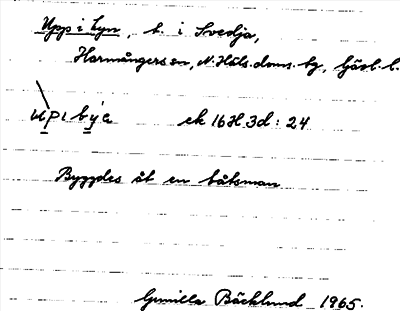 Upp i byn, t. i Svedja,
Harmångers sn, N. Häls. doms. bg, Gävl. l.
upi býa ek 16H3d: 24
Byggdes åt en båtsman
Gunilla Bäcklund 1965.